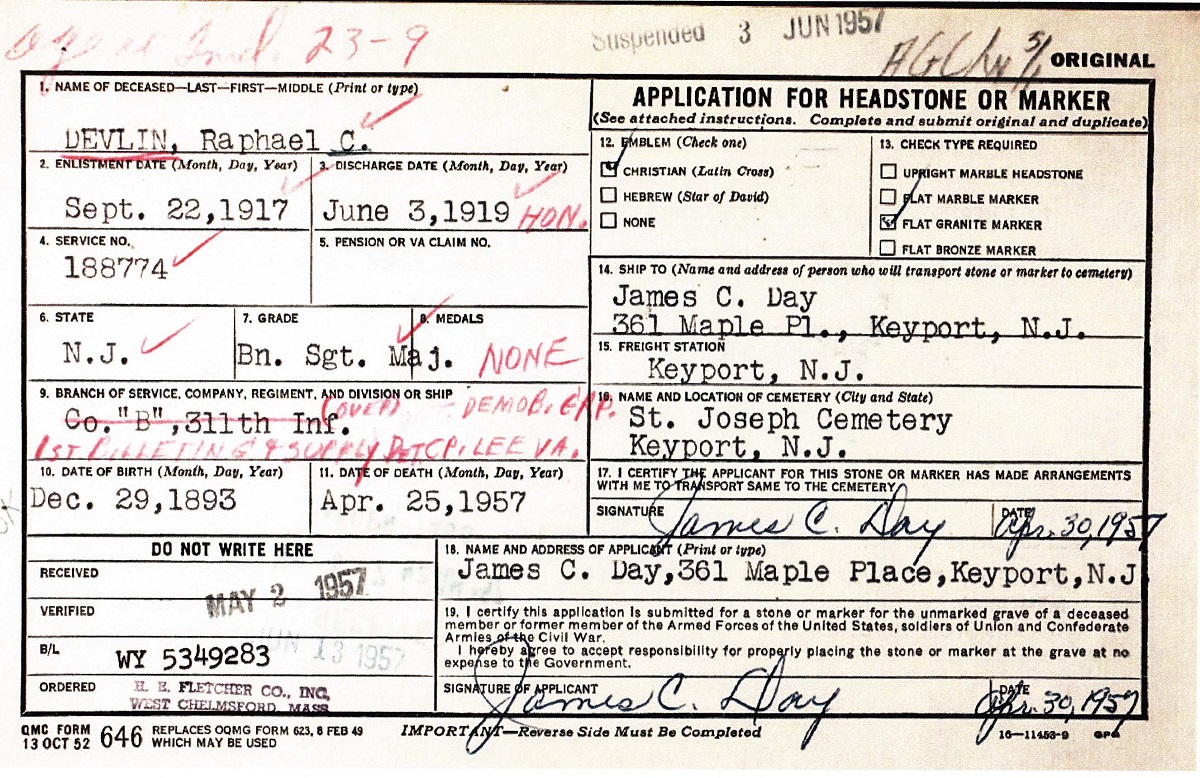 23-9
Suspended 3 JUN 1957
ORIGINAL
1. NAME OF DECEASED—LAST—FIRST—MIDDLE (Print or type)
DEVLIN, Raphael C.
2. ENLISTMENT DATE (Month, Day, Year)
3. DISCHARGE DATE (Month, Day, Year)
Sept. 22,1917
June 3,1919 HON.
4. SERVICE NO.
188774
5. PENSION OR VA CLAIM NO.
6. STATE
N.J.
7. GRADE
Bn. Sgt. Maj.
8. MEDALS
NONE
9. BRANCH OF SERVICE, COMPANY, REGIMENT, AND DIVISION OR SHIP
(OVER) - DEMOB. GRP.
Co. "B",311th Inf.
1ST BILLETING & SUPPLY DET CP. LEE VA.
10. DATE OF BIRTH (Month, Day, Year)
Dec. 29,1893
11. DATE OF DEATH (Month, Day, Year)
Apr. 25,1957
APPLICATION FOR HEADSTONE OR MARKER
(See attached instructions. Complete and submit original and duplicate)
12. EMBLEM (Check one)
CHRISTIAN (Latin Cross)
HEBREW (Star of David)
NONE
13. CHECK TYPE REQUIRED
UPRIGHT MARBLE HEADSTONE
FLAT MARBLE MARKER
FLAT GRANITE MARKER
FLAT BRONZE MARKER
14. SHIP TO (Name and address of person who will transport stone or marker to cemetery)
James C. Day
361 Maple Pl., Keyport, N.J.
15. FREIGHT STATION
Keyport, N.J.
16. NAME AND LOCATION OF CEMETERY (City and State)
St. Joseph Cemetery
Keyport, N.J.
17. I CERTIFY THE APPLICANT FOR THIS STONE OR MARKER HAS MADE ARRANGEMENTS
WITH ME TO TRANSPORT SAME TO THE CEMETERY
SIGNATURE
James C. Day
DATE
Apr. 30, 1957
DO NOT WRITE HERE
RECEIVED
MAY 2 1957
VERIFIED
JUN 13 1957
B/L
WY 5349283
ORDERED
H. E. FLETCHER CO., INC.
WEST CHELMSFORD, MASS
18. NAME AND ADDRESS OF APPLICANT (Print or type)
James C. Day,361 Maple Place,Keyport,N.J
19. I certify this application is submitted for a stone or marker for the unmarked grave of a deceased
member or former member of the Armed Forces of the United States, soldiers of Union and Confederate
Armies of the Civil War.
I hereby agree to accept responsibility for properly placing the stone or marker at the grave at no
expense to the Government.
SIGNATURE OF APPLICANT
James C. Day
DATE
Apr. 30, 1957
QMC FORM
13 OCT 52 646
REPLACES OQMG FORM 623, 8 FEB 49
WHICH MAY BE USED
IMPORTANT—Reverse Side Must Be Completed
16—11453-9 GPO